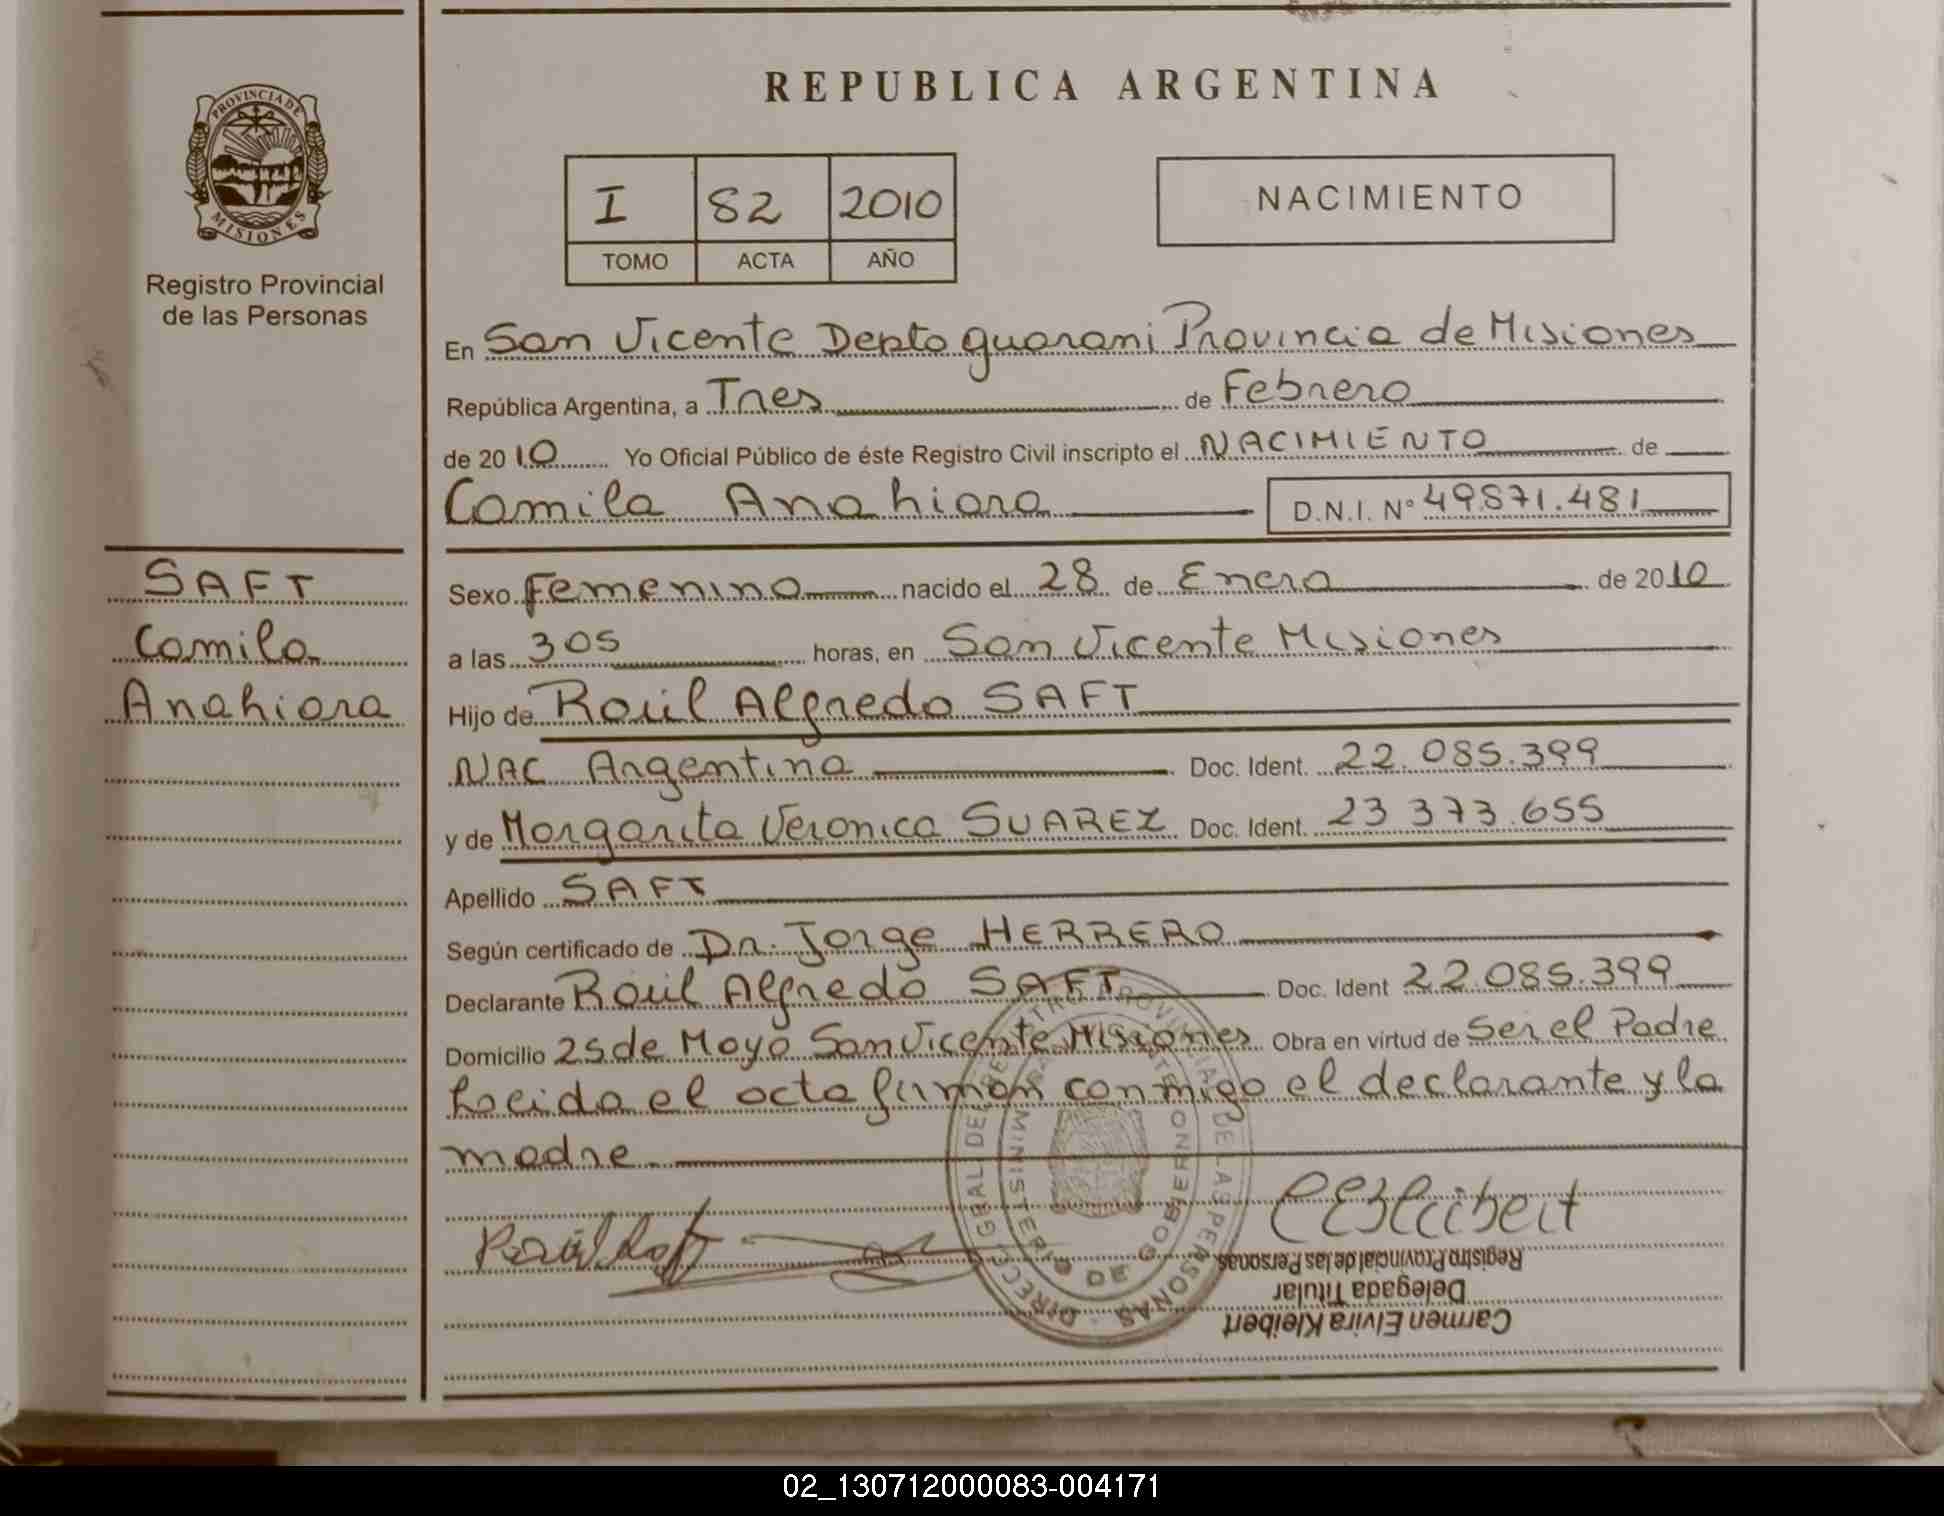 REPUBLICA ARGENTINA
PROVINCIA DE MISIONES
Registro Provincial
de las Personas
I 82 2010
TOMO ACTA AÑO
NACIMIENTO
En San Vicente Depto guarani Provincia de Misiones
República Argentina, a Tres de Febrero
de 2010 Yo Oficial Público de éste Registro Civil inscripto el NACIMIENTO de
Camila Anahiara D.N.I. Nº 49871.481
SAFT
Camila
Anahiara
Sexo Femenino nacido el 28 de Enero de 2010
a las 305 horas, en San Vicente Misiones
Hijo de Raúl Alfredo SAFT
NAC Argentina Doc. Ident. 22.085.399
y de Margarita Veronica SUAREZ Doc. Ident. 23 373.655
Apellido SAFT
Según certificado de Dr. Jorge HERRERO
Declarante Raúl Alfredo SAFT Doc. Ident 22.085.399
Domicilio 25 de Mayo San Vicente Misiones Obra en virtud de Ser el Padre
Leida el acta firman conmigo el declarante y la
madre
Raúl Saft
CEKleibert
Registro Provincial de las Personas
Delegada Titular
Carmen Elvira Kleibert
02_130712000083-004171